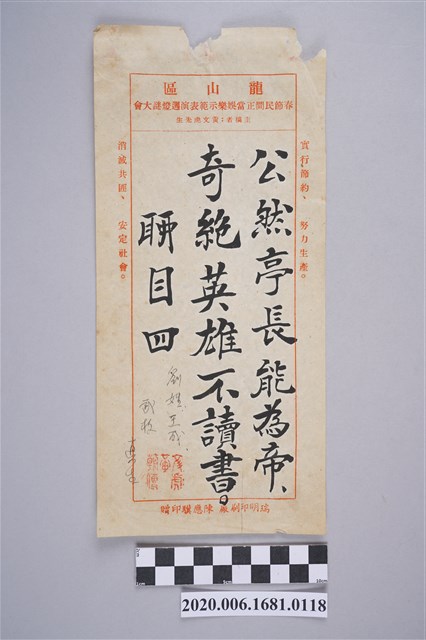 龍山區
春節民間正當娛樂示範表演暨燈謎大會
主編者：黃文虎先生
實行節約、努力生產。
公然亭長能為帝、
奇絶英雄不讀書。
聊目四
消滅共匪、安定社會。
瑞明印刷廠 陳應騏印贈
2020.006.1681.0118